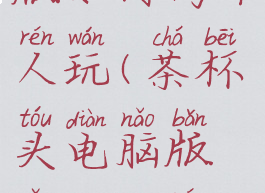 rén wán chá bēi
人玩(茶杯
tóu diàn nǎo bǎn
头电脑版